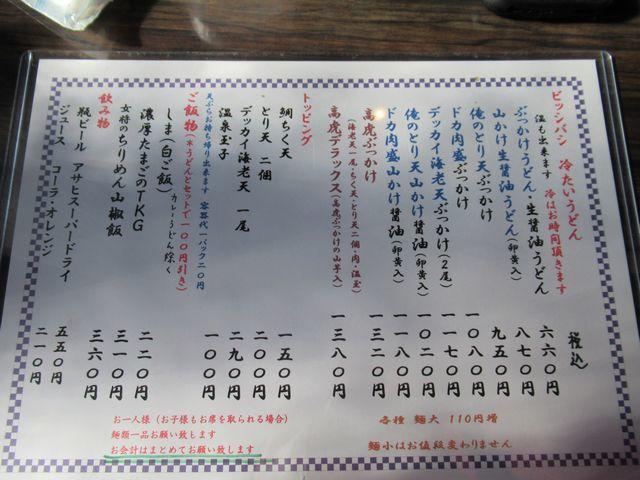 ビッシバシ 冷たいうどん
温も出来ます 冷はお時間頂きます
税込
ぶっかけうどん・生醤油うどん 六六〇円
山かけ生醤油うどん(卵黄入) 八七〇円
俺のとり天ぶっかけ 九五〇円
ドカ肉ぶっかけ 一〇八〇円
デッカイ海老天ぶっかけ(2尾) 一一七〇円
俺のとり天山かけ醤油(卵黄入) 一〇二〇円
ドカ肉盛山かけ醤油(卵黄入) 一一八〇円
高虎ぶっかけ 一三二〇円
(海老天一尾・ちく天・とり天二個・肉・温玉)
高虎デラックス(高虎ぶっかけの山芋入) 一三八〇円
トッピング
鯛ちく天 一五〇円
とり天 二個 二〇〇円
デッカイ海老天 一尾 二九〇円
温泉玉子 一〇〇円
天ぷらお持ち帰り出来ます 容器代一パック二〇円
ご飯物(※うどんとセットで一〇〇円引き)
しま(白ご飯) カレーうどん除く 二二〇円
濃厚たまごのTKG 三一〇円
女将のちりめん山椒飯 三六〇円
飲み物
瓶ビール アサヒスーパードライ 五五〇円
ジュース コーラ・オレンジ 二一〇円
各種 麺大 110円増
麺小はお値段変わりません
お一人様(お子様もお席を取られる場合)
麺類一品お願い致します
お会計はまとめてお願い致します